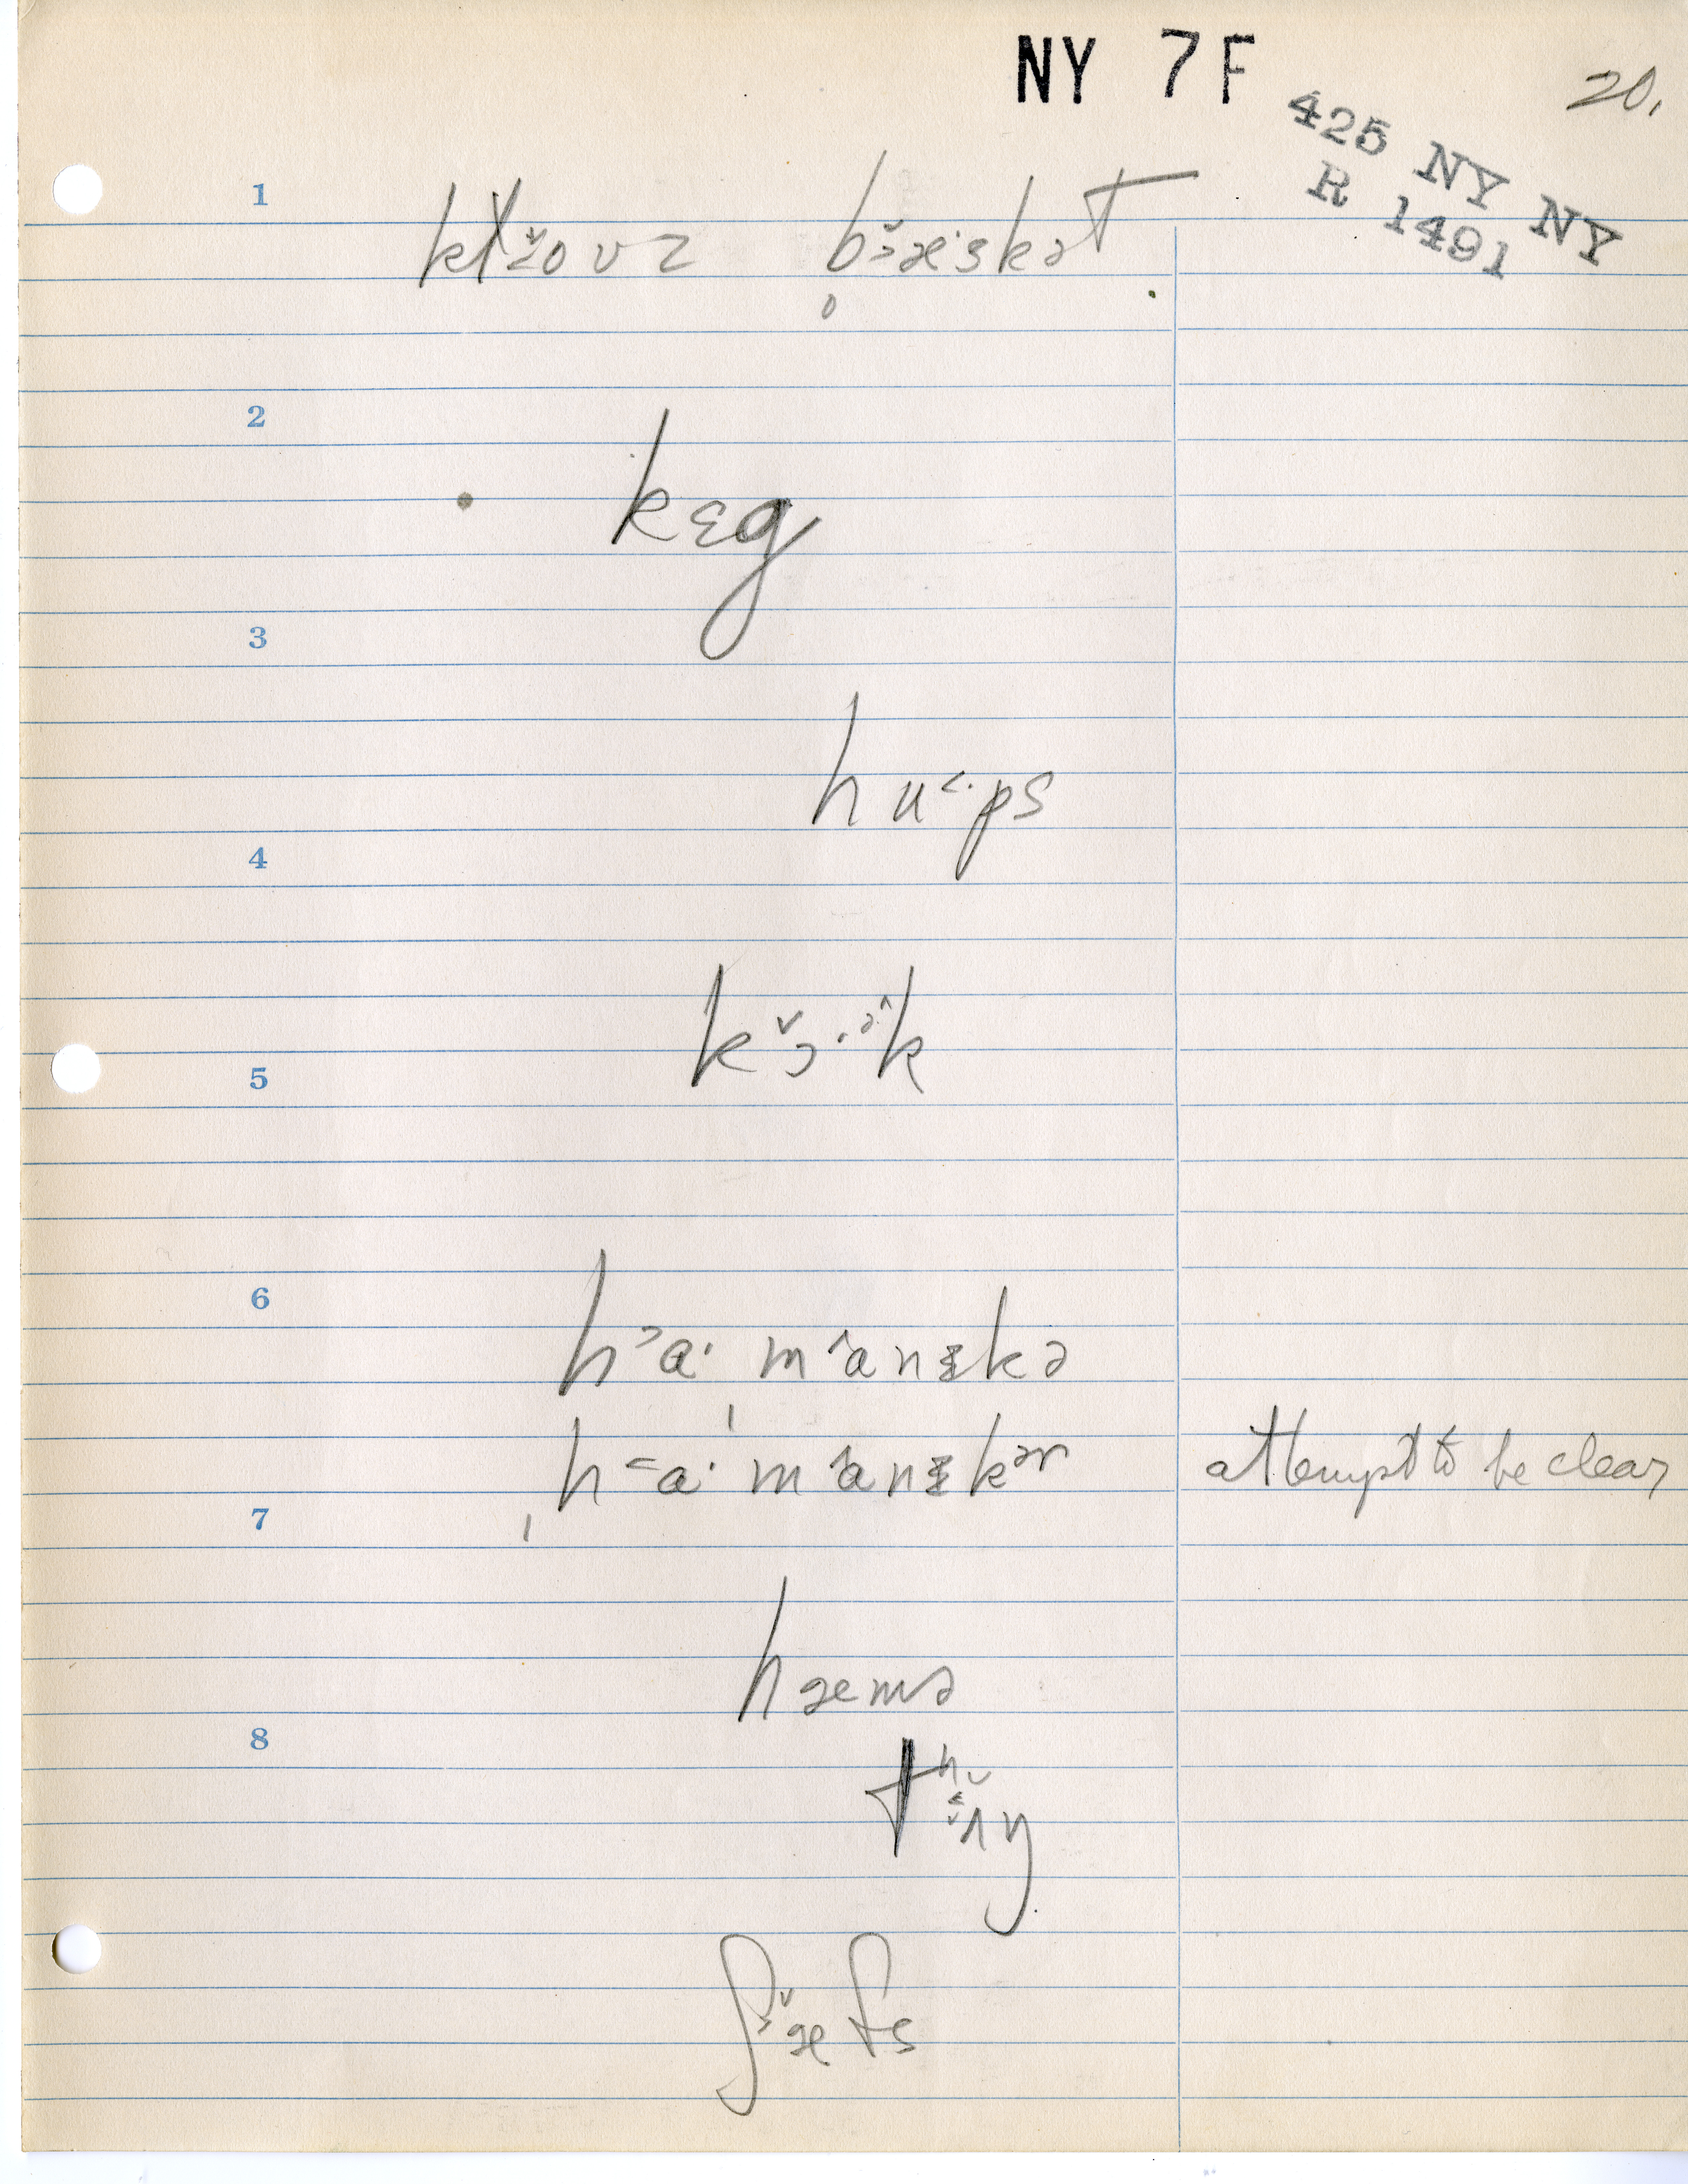 NY 7F
20.
425 NY NY
R 1491
1
klovz bæskət
2
kɛg
3
hu˂·ps
4
kɔ̌·ᵊ̂k
5
6
h˃a· m˄anɪkə
h˂a· m˄anɪkər attempt to be clear
7
hæmə
8
tʰʌŋ
ʃæfs